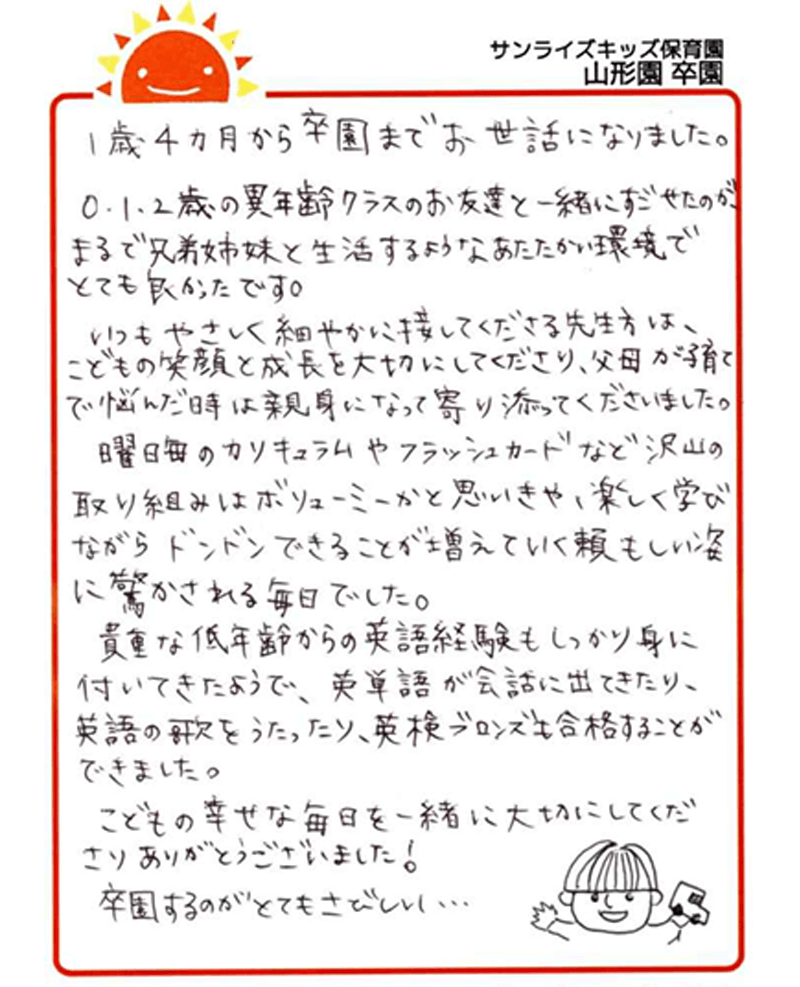 サンライズキッズ保育園
山形園 卒園
1歳4カ月から卒園までお世話になりました。
0.1.2歳の異年齢クラスのお友達と一緒にすごせたのが
まるで兄弟姉妹と生活するようなあたたかい環境で
とても良かったです。
いつもやさしく細やかに接してくださる先生方は、
こどもの笑顔と成長を大切にしてくださり、父母が子育て
で悩んだ時は親身になって寄り添ってくださいました。
曜日毎のカリキュラムやフラッシュカードなど沢山の
取り組みはボリューミーかと思いきや、楽しく学び
ながらドンドンできることが増えていく頼もしい姿
に驚かされる毎日でした。
貴重な低年齢からの英語経験もしっかり身に
付いてきたようで、英単語が会話に出てきたり、
英語の歌をうたったり、英検ブロンズも合格することが
できました。
こどもの幸せな毎日を一緒に大切にしてくだ
さりありがとうございました!
卒園するのがとてもさびしい…